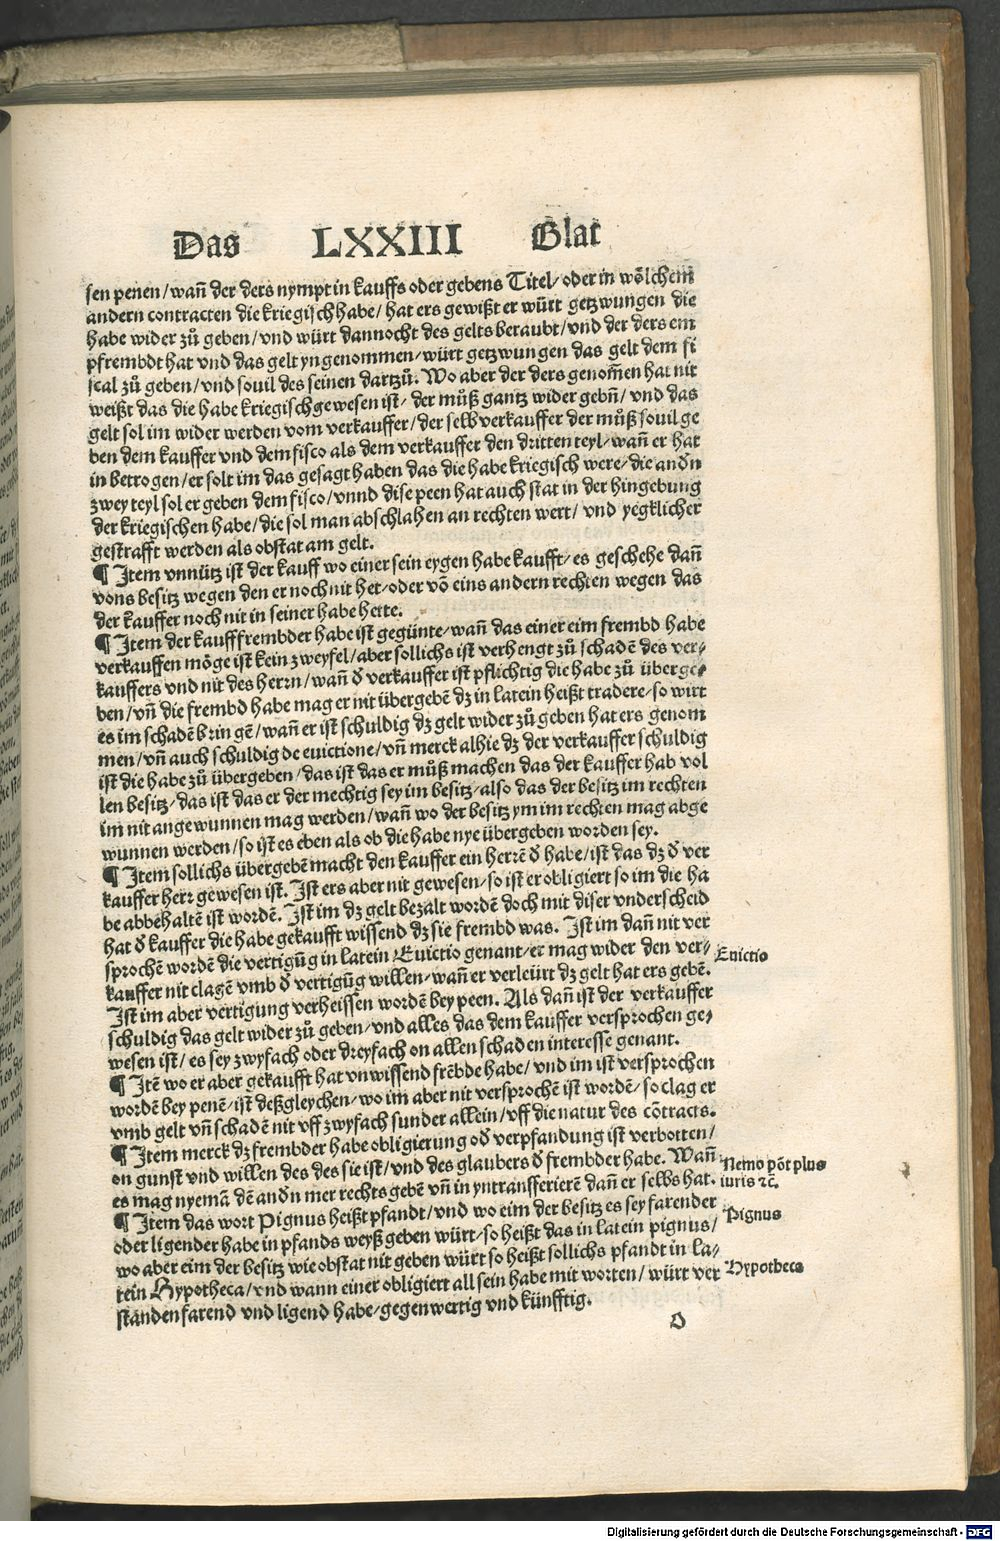 Das LXXIII Blat
sen penen / wañ der ders nympt in kauffs oder gebens Titel / oder in woͤlchem
andern contracten die kriegisch habe / hat ers gewißt er würt getzwungen die
habe wider zů geben / vnd würt dannocht des gelts beraubt / vnd der ders em
pfrembdt hat vnd das gelt yngenommen / würt getzwungen das gelt dem fi
scal zů geben / vnd souil des seinen dartzů. Wo aber der ders genom̄en hat nit
weißt das die habe kriegisch gewesen ist / der můß gantz wider gebñ / vnd das
gelt sol im wider werden vom verkauffer / der selb verkauffer der můß souil ge
ben dem kauffer vnd dem fisco als dem verkauffer den dritten teyl / wañ er hat
in betrogen / er solt im das gesagt haben das die habe kriegisch were / die andn̄
zwey teyl sol er geben dem fisco / vnnd dise peen hat auch stat in der hingebung
der kriegischen habe / die sol man abschlahen an rechten wert / vnd yegklicher
gestrafft werden als obstat am gelt.
¶ Item vnnütz ist der kauff wo einer sein eygen habe kaufft / es geschehe dañ
vons besitz wegen den er noch nit het / oder võ eins andern rechten wegen das
der kauffer noch nit in seiner habe hette.
¶ Item der kauff frembder habe ist gegünte / wañ das einer eim frembd habe
verkauffen moͤge ist kein zweyfel / aber sollichs ist verhengt zů schadẽ des ver⸗
kauffers vnd nit des herrn / wañ đ verkauffer ist pflichtig die habe zů überge⸗
ben / vñ die frembd habe mag er nit übergebẽ dz in latein heißt tradere / so wirt
es im schadẽ bringẽ / wañ er ist schuldig dz gelt wider zů geben hat ers genom
men / vñ auch schuldig de euictione / vñ merck alhie dz der verkauffer schuldig
ist die habe zů übergeben / das ist das er můß machen das der kauffer hab vol
len besitz / das ist das er der mechtig sey im besitz / also das der besitz im rechten
im nit angewunnen mag werden / wañ wo der besitz ym im rechten mag abge
wunnen werden / so ist es eben als ob die habe nye übergeben worden sey.
¶ Item sollichs übergebẽ macht den kauffer ein herrẽ đ habe / ist das dz đ ver
kauffer herr gewesen ist. Ist ers aber nit gewesen / so ist er obligiert so im die ha
be abbehaltẽ ist wordẽ. Ist im dz gelt bezalt wordẽ doch mit diser vnderscheid
hat đ kauffer die habe gekaufft wissend dz sie frembd was. Ist im dañ nit ver
sprochẽ wordẽ die vertigũg in latein Euictio genant / er mag wider den ver⸗
kauffer nit clagẽ vmb đ vertigũg willen / wañ er verleürt dz gelt hat ers gebẽ.
Ist im aber vertigung verheissen wordẽ bey peen. Als dañ ist der verkauffer
schuldig das gelt wider zů geben / vnd alles das dem kauffer versprochen ge⸗
wesen ist / es sey zwyfach oder dreyfach on allen schaden interesse genant.
¶ Itẽ wo er aber gekaufft hat vnwissend frẽbde habe / vnd im ist versprochen
wordẽ bey penẽ / ist deßgleychen / wo im aber nit versprochẽ ist wordẽ / so clag er
vmb gelt vñ schadẽ nit vff zwyfach sunder allein / vff die natur des cõtracts.
¶ Item merck dz frembder habe obligierung ođ verpfandung ist verbotten /
on gunst vnd willen des des sie ist / vnd des glaubers đ frembder habe. Wañ
es mag nyemã dẽ andn̄ mer rechts gebẽ vñ in yntransferierẽ dañ er selbs hat.
¶ Item das wort Pignus heißt pfandt / vnd wo eim der besitz es sey farender
oder ligender habe in pfands weyß geben würt / so heißt das in latein pignus /
wo aber eim der besitz wie obstat nit geben würt so heißt sollichs pfandt in la⸗
tein Hypotheca / vnd wann einer obligiert all sein habe mit worten / würt ver
standen farend vnd ligend habe / gegenwertig vnd künfftig.
O
Euictio
Nemo põt plus
iuris ꝛc̃.
Pignus
Hypotheca
Digitalisierung gefördert durch die Deutsche Forschungsgemeinschaft - DFG